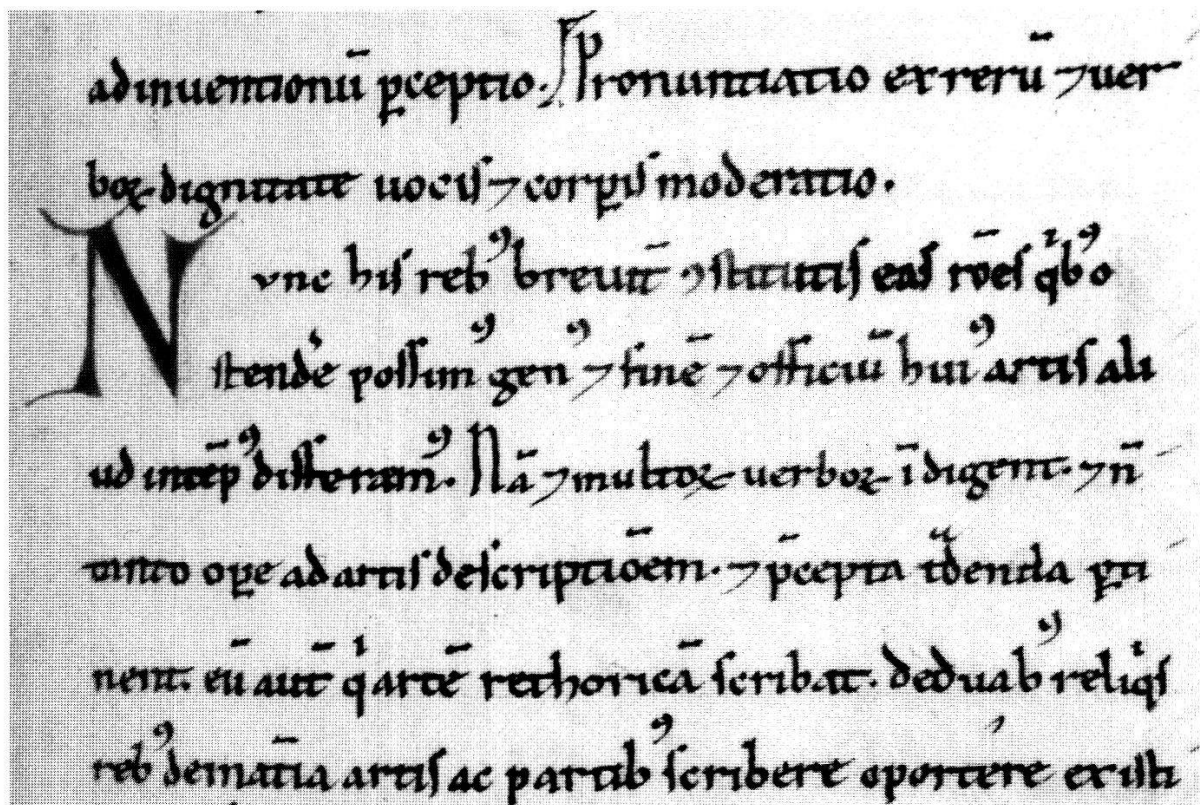 adinuentionū ꝑceptio. Pronuntiatio ex rerū ⁊ uer
boꝝ dignitate uocis ⁊ corꝑis moderatio.
Nunc his rebꝰ breuit̄ ꝯstitutis eas rōes qͥbꝰ o
stende̓ possimꝰ genꝰ ⁊ finē ⁊ officiū huiꝰ artis ali
ud in tēpꝰ differamꝰ. Nā ⁊ multoꝝ uerboꝝ īdigent. ⁊ n̄
tanto oꝑe ad artis descriptiōem. ⁊ p̄cepta tᷓdenda ꝑti
nent. eū aut̄ qͥ artē rethoricā scribat. de duabꝰ reliqͥs
rebꝰ de mat̄ia artis ac partibꝰ scribere oportere existi